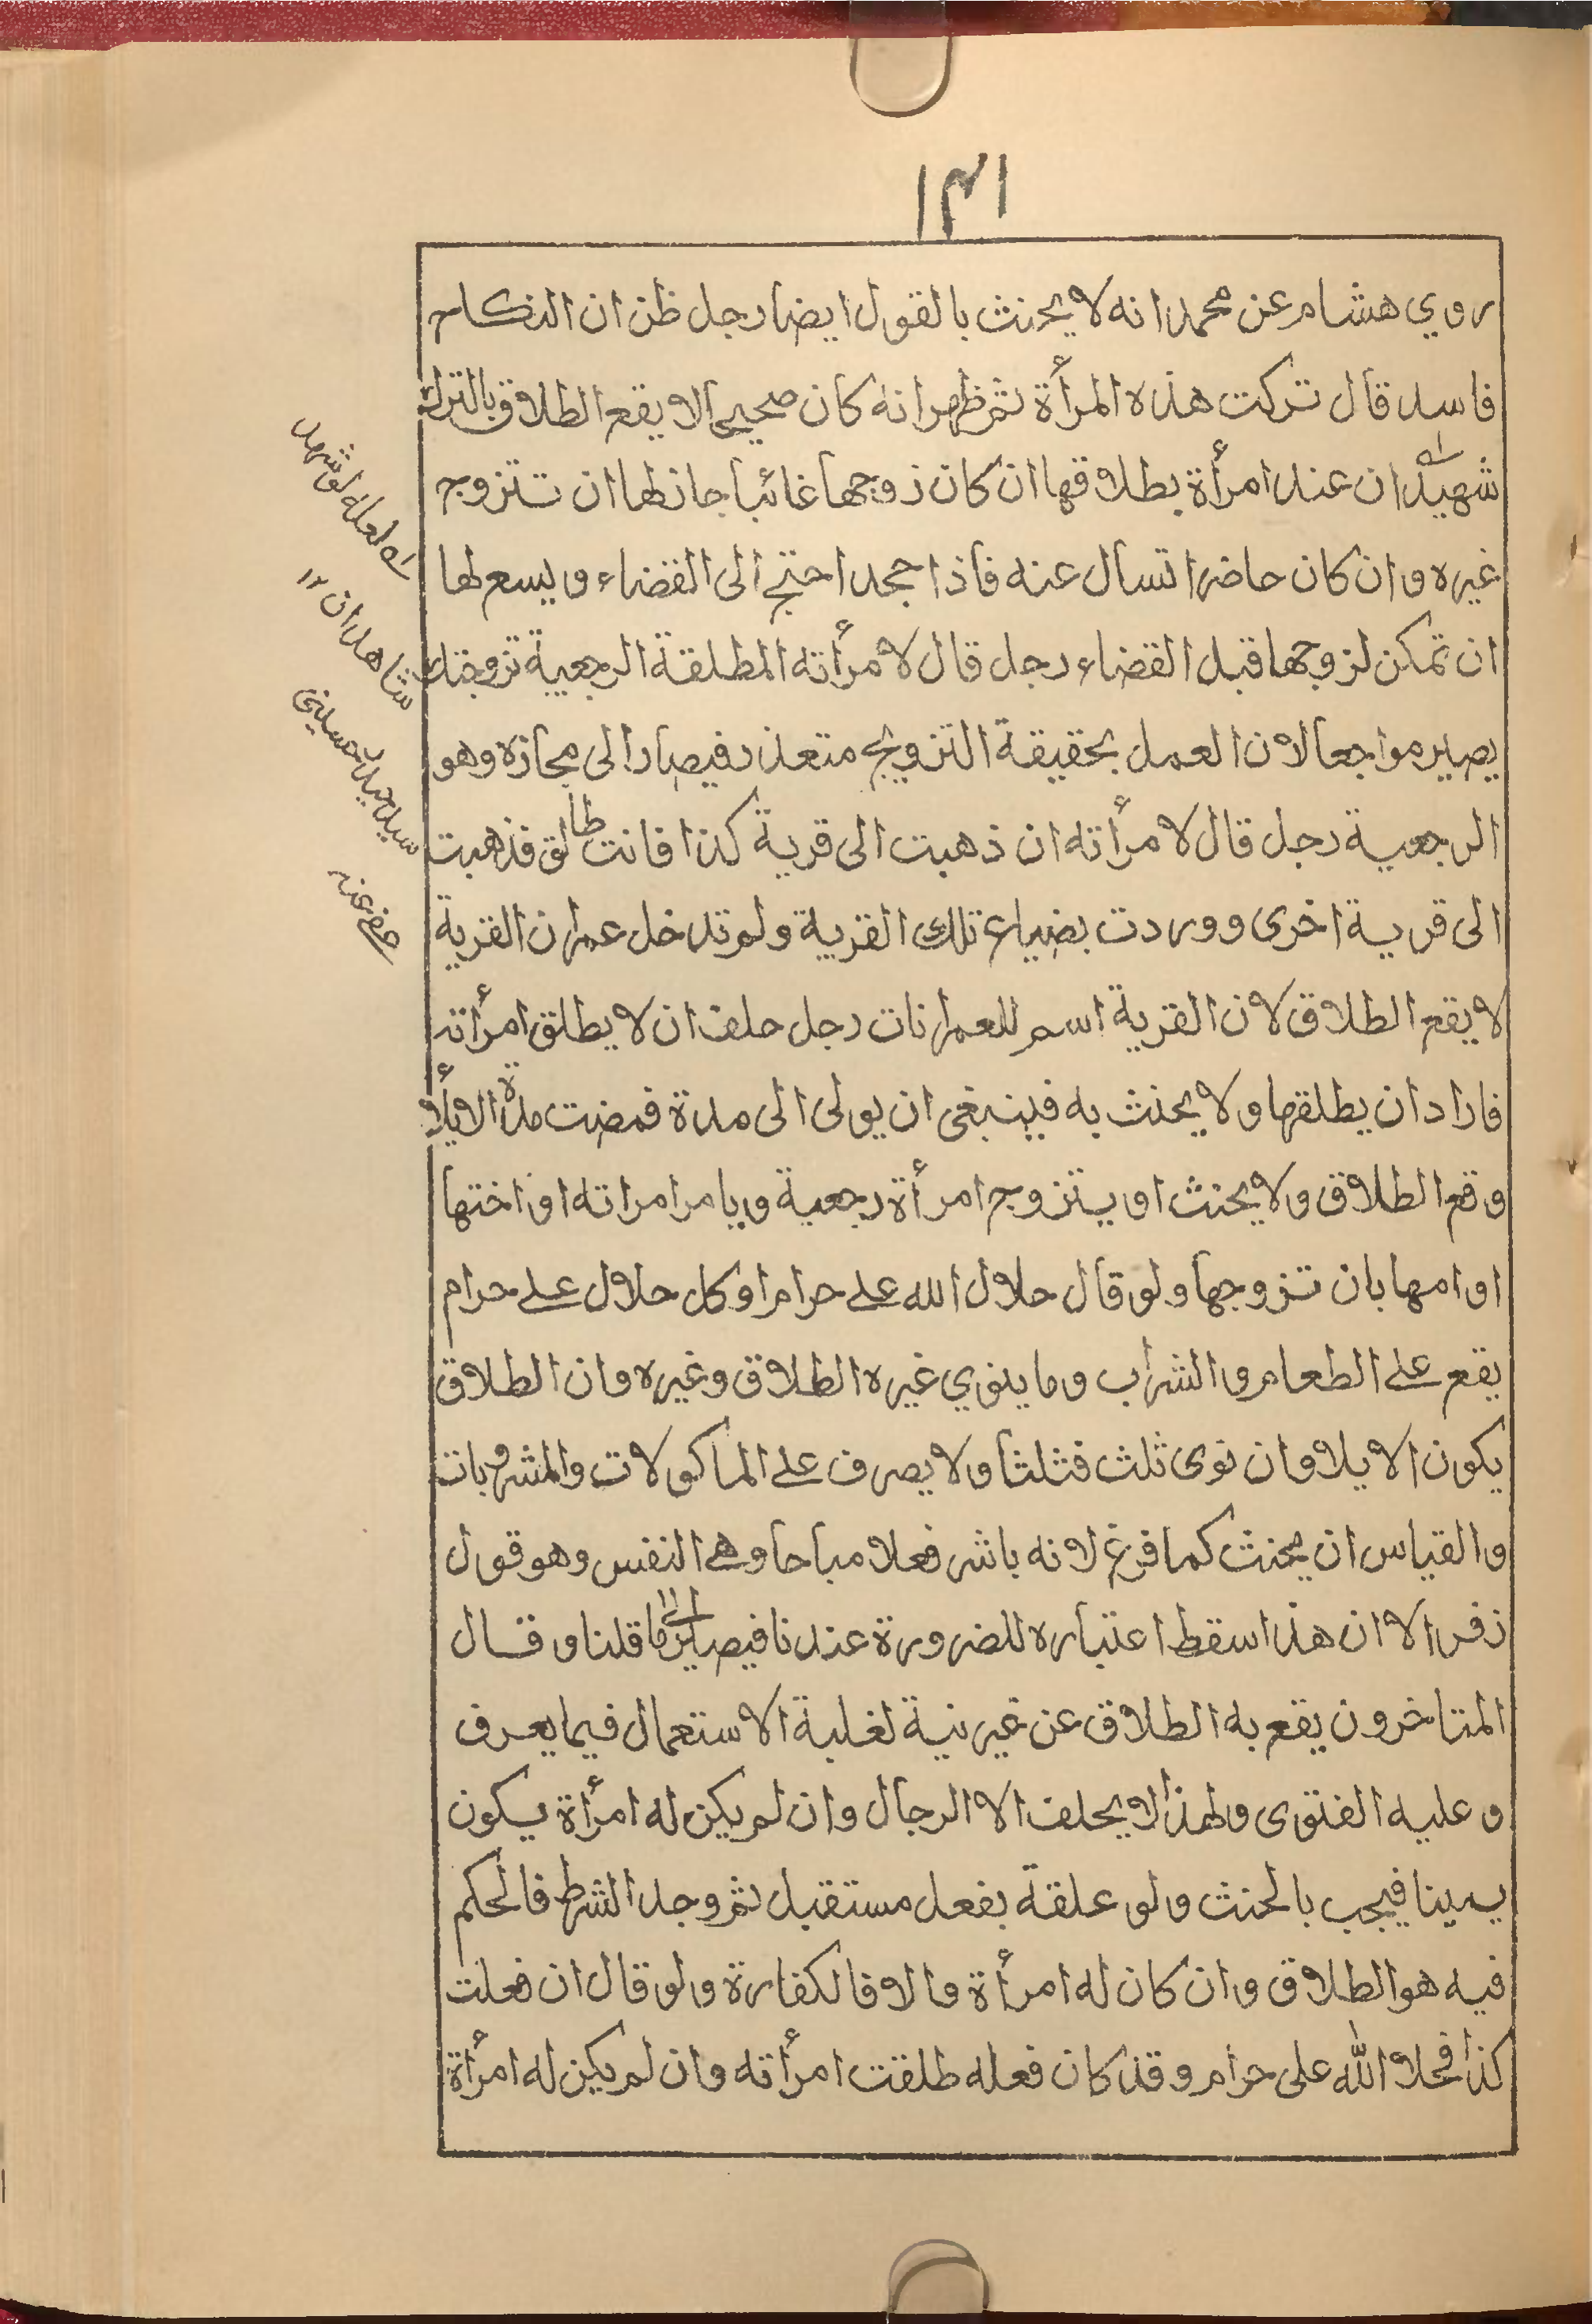 ١٣١
روي هشام عن محمد انه لا يحنث بالقول ايضا رجل ظن ان النكاح
فاسد قال تركت هذه المرأة ثم ظهر انه كان صحيحا لا يقع الطلاق بالترك
شهيد ان عند امرأة بطلاقها ان كان زوجها غائبا جاز لها ان تتزوج
غيره وان كان حاضرا تسأل عنه فاذا جحد احتج الى القضاء ويسع لها
ان تمكن لزوجها قبل القضاء رجل قال لامرأته المطلقة الرجعية تزوجتك
يصير مواجعا لان العمل بحقيقة التزويج متعذر فيصار الى مجازه وهو
الرجعية رجل قال لامرأته ان ذهبت الى قرية كذا فانت طالق فذهبت
الى قرية اخرى ووردت بضياع تلك القرية ولم تدخل عمران القرية
لا يقع الطلاق لان القرية اسم للعمرانات رجل حلف ان لا يطلق امرأته
فاراد ان يطلقها ولا يحنث به فينبغى ان يولى الى مدة فمضت مدة الايلأ
وقع الطلاق ولا يحنث او يتزوج امرأة رجعية ويامر امراته او اختها
او امها بان تزوجها ولو قال حلال الله على حرام او كل حلال على حرام
يقع على الطعام والشراب وما ينوي غيره الطلاق وغيره وان الطلاق
يكون الايلا وان نوى ثلث فثلثا ولا يصرف على الماكولات والمشروبات
والقياس ان يحنث كما فرغ لانه باشر فعلا مباحا وهى النفس وهو قول
زفر الا ان هذا سقط اعتباره للضرورة عندنا فيصار الى ما قلنا وقال
المتاخرون يقع به الطلاق عن غير نية لغلبة الاستعمال فيما يعرف
وعليه الفتوى ولهذا لا يحلف الا الرجال وان لم يكن له امرأة يكون
يمينا فيجب بالحنث ولو علقة بفعل مستقبل ثم وجد الشرط فالحكم
فيه هو الطلاق وان كان له امرأة والا فالكفارة ولو قال ان فعلت
كذا فحلا الله على حرام وقد كان فعله طلقت امرأته وان لم يكن له امرأة
له لعله لو شهد
شاهدان ١٢
سيد حسينى
عفى عنه